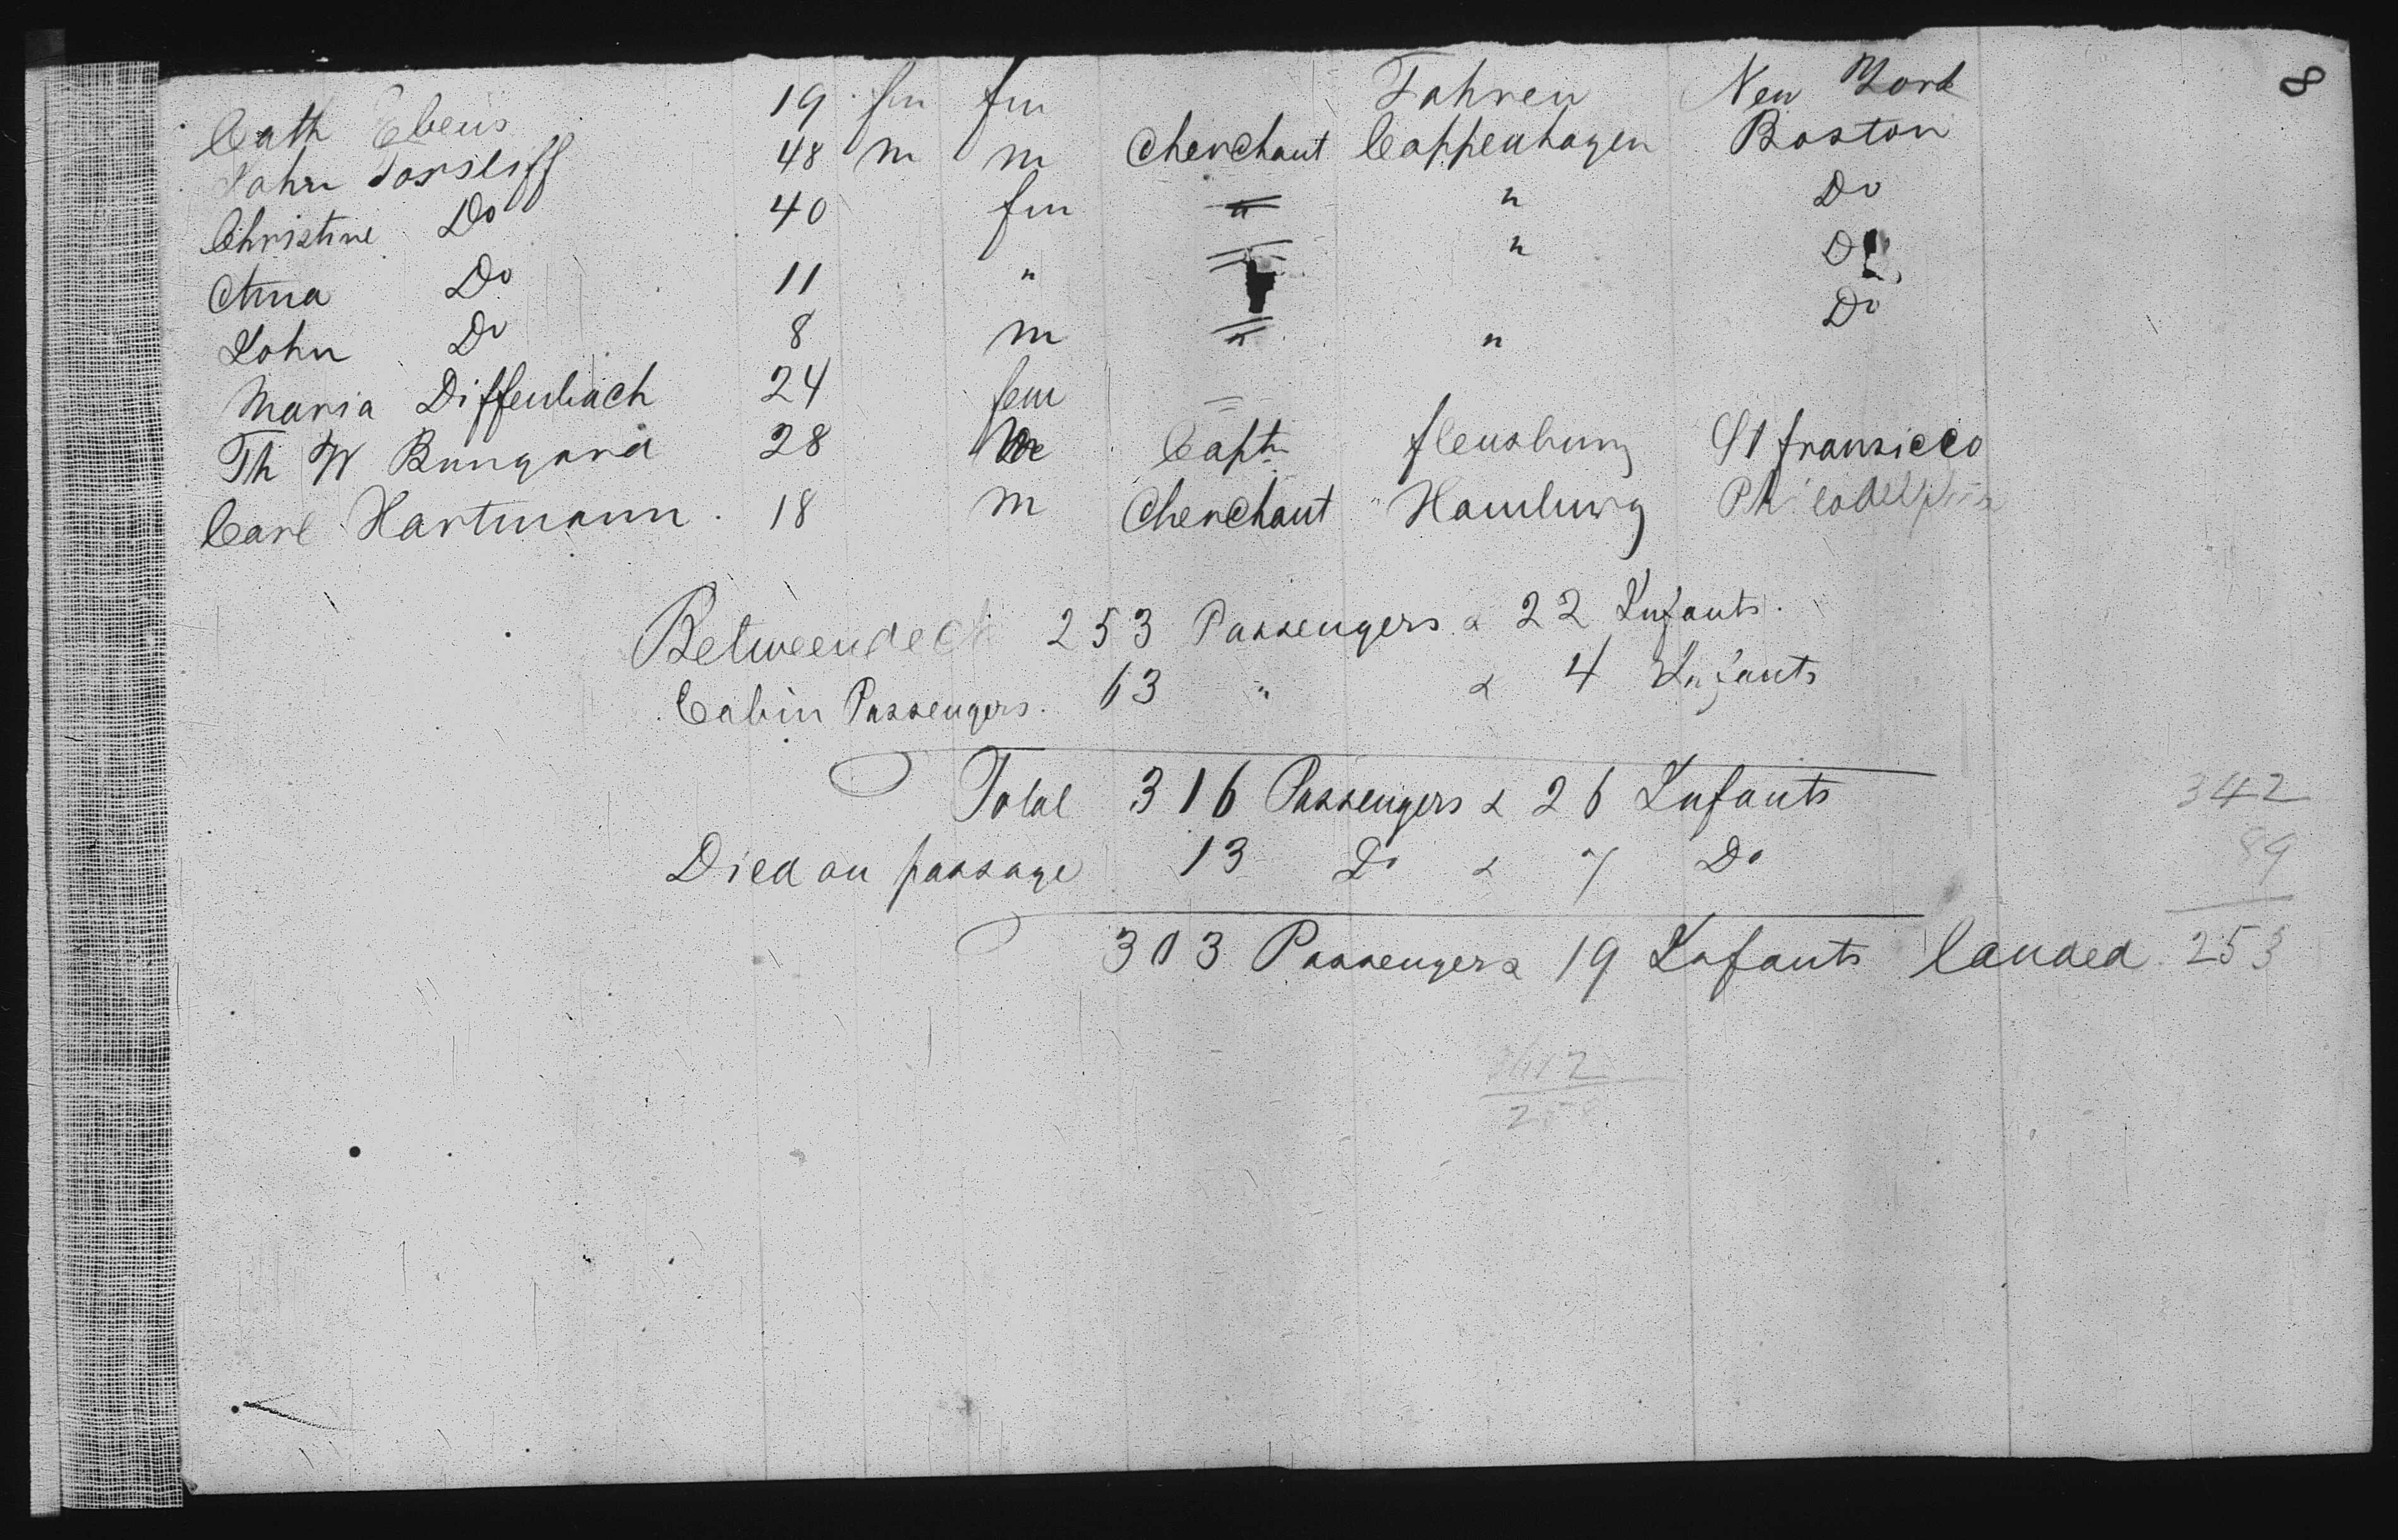 8
Cath Ebens 19 fm fm Fahren New York
John Torsliff 48 m m Cherchant Coppenhagen Boston
Christine Do 40 fm " " Do
Anna Do 11 " " " Do
John Do 8 m " " Do
Maria Diffenbach 24 fem
Th W Bungard 28 Capt flensburg St fransicco
Carl Hartmann 18 m Cherchant Hamburg Philadelphia
Betweendeck 253 Passengers & 22 Infants.
Cabin Passengers 63 " & 4 Infants
Total 316 Passengers & 26 Infants 342
Died on passage 13 Do & 7 Do 89
303 Passengers 19 Infants landed 253